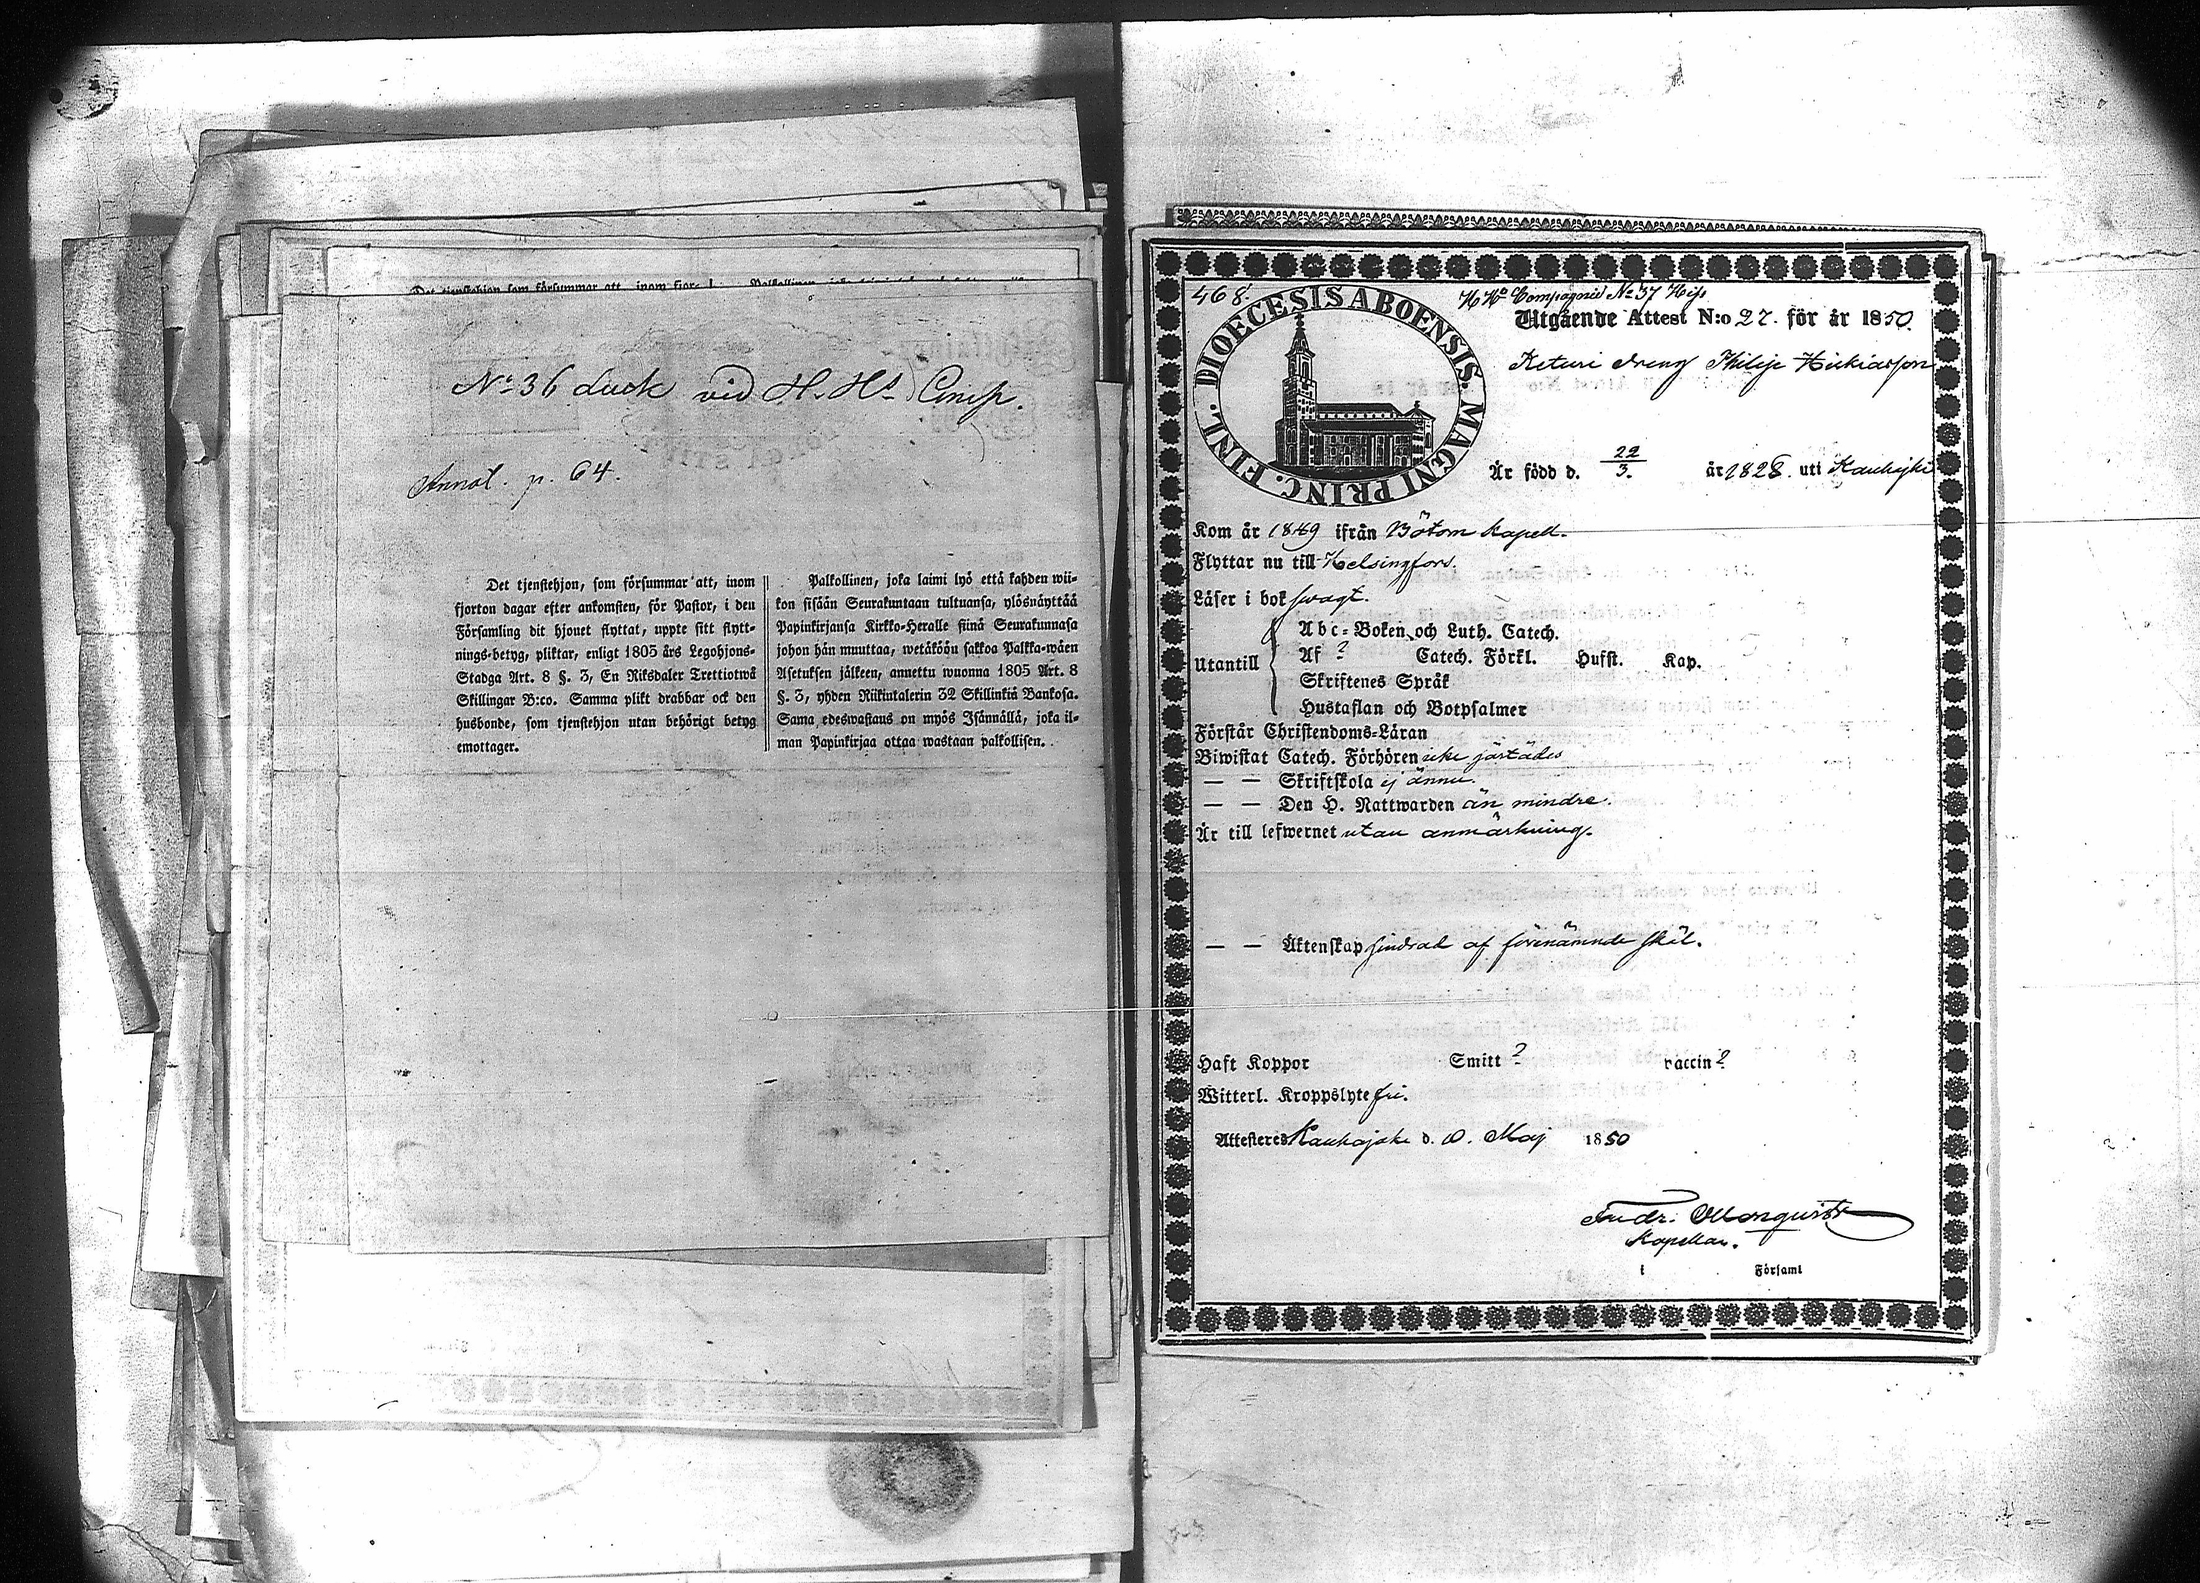 No 36 Luck vid H. Hs Comp.
Annot. p. 64.
Det tjenstehjon, som försummar att, inom
fjorton dagar efter ankomsten, för Pastor, i den
Församling dit hjonet flyttat, uppte sitt flytt-
nings-betyg, pliktar, enligt 1805 års Legohjons-
Stadga Art. 8 §. 3, En Riksdaler Trettiotwå
Skillingar B:co. Samma plikt drabbar ock den
husbonde, som tjenstehjon utan behörigt betyg
emottager.
Palkollinen, joka laimi lyö että kahden wii-
kon sisään Seurakuntaan tultuansa, ylösnäyttää
Papinkirjansa Kirkko-Heralle siinä Seurakunnasa
johon hän muuttaa, wetäköön sakkoa Palkka-wäen
Asetuksen jälkeen, annettu wuonna 1805 Art. 8
§. 3, yhden Riikintalerin 32 Skillinkiä Bankosa.
Sama edeswastaus on myös Isännällä, joka il-
man Papinkirjaa ottaa wastaan palkollisen.
468.
Compagnie No 37
DIOECESIS ABOENSIS. MAGNI PRINC. FINL.
Utgående Attest N:o 27. för år 1850.
Philip
Är född d. 22/3. år 1828. uti
Kom år 1849 ifrån Bötom Kapell.
Flyttar nu till Helsingfors.
Läser i bok swagt.
Utantill
Abc-Boken och Luth. Catech.
Af ? Catech. Förkl. Hufst. Kap.
Skriftenes Språk
Hustaflan och Botpsalmer
Förstår Christendoms-Läran
Biwistat Catech. Förhören icke
— — Skriftskola ej ännu.
— — Den H. Nattwarden än mindre.
Är till lefwernet utan anmärkning.
— — Äktenskap hindrad af förenämnde skäl.
Haft Koppor Smitt ? vaccin ?
Witterl. Kroppslyte fri.
Attesteres Kauhajoki d. 10. Maj 1850
Kapellan.
i Församl